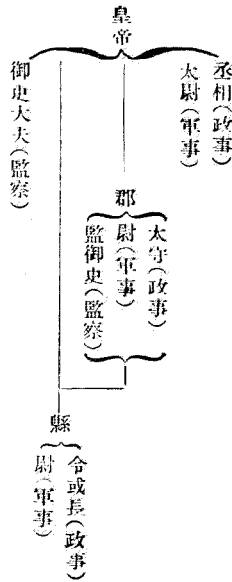 皇帝
丞相(政事)
太尉(軍事)
御史大夫(監察)
郡
太守(政事)
尉(軍事)
監御史(監察)
縣
令或長(政事)
尉(軍事)